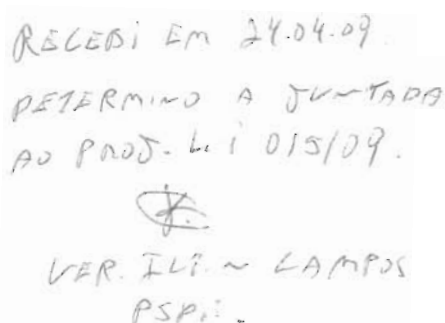 RECEBI EM 24.04.09
DETERMINO A JUNTADA
AO PROJ. LEI 015/09.
VER. CAMPOS